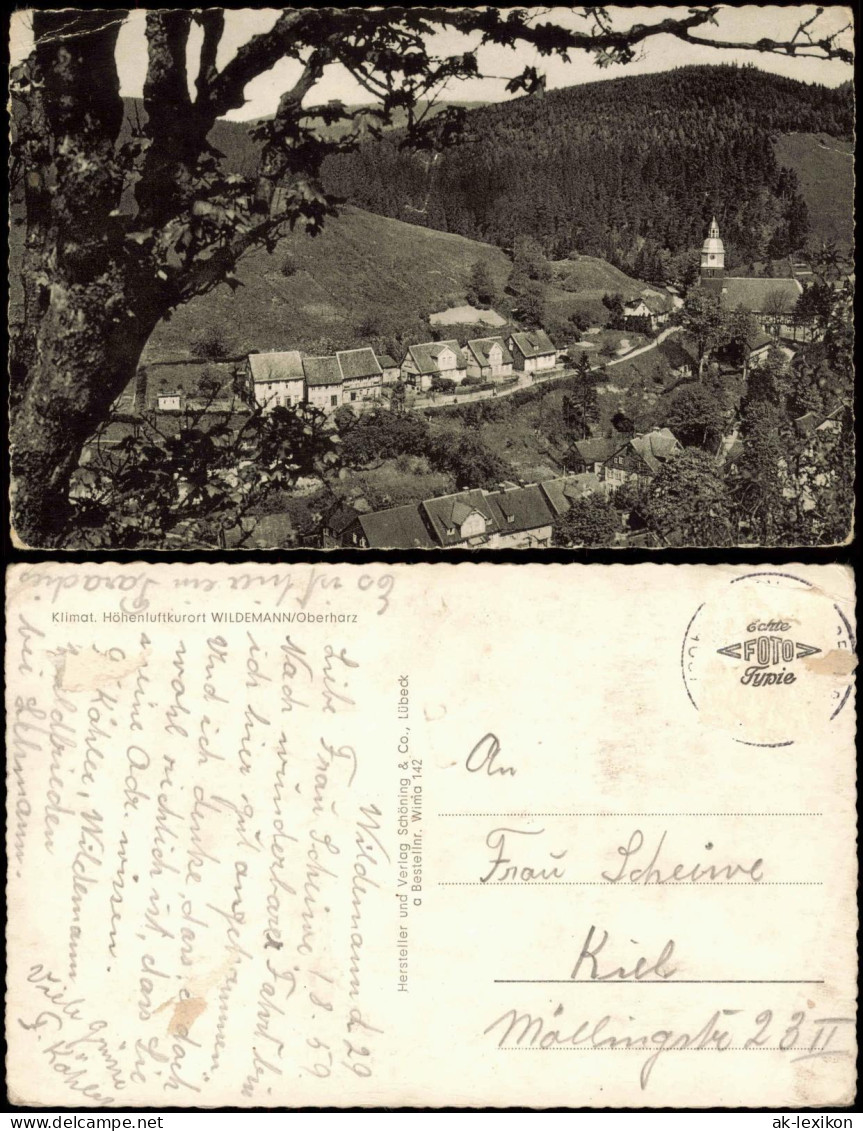 Klimat. Höhenluftkurort WILDEMANN/Oberharz
Es ist hier ein Paradies
Wildemann d 29
8. 59
Liebe Frau Scheiwe!
Nach wunderbarer Fahrt bin
ich hier gut angekommen
Und ich denke, dass es doch
wohl richtig ist, dass Sie
meine Adr. wissen.
G. Köhler, Wildemann
Waldfrieden
bei Lehmann.
Viele Grüsse
G. Köhler
Hersteller und Verlag Schöning & Co., Lübeck
a Bestellnr. Wima 142
Echte
<FOTO>
Typie
An
Frau Scheiwe
Kiel
Möllingstr 23 II
ak-lexikon